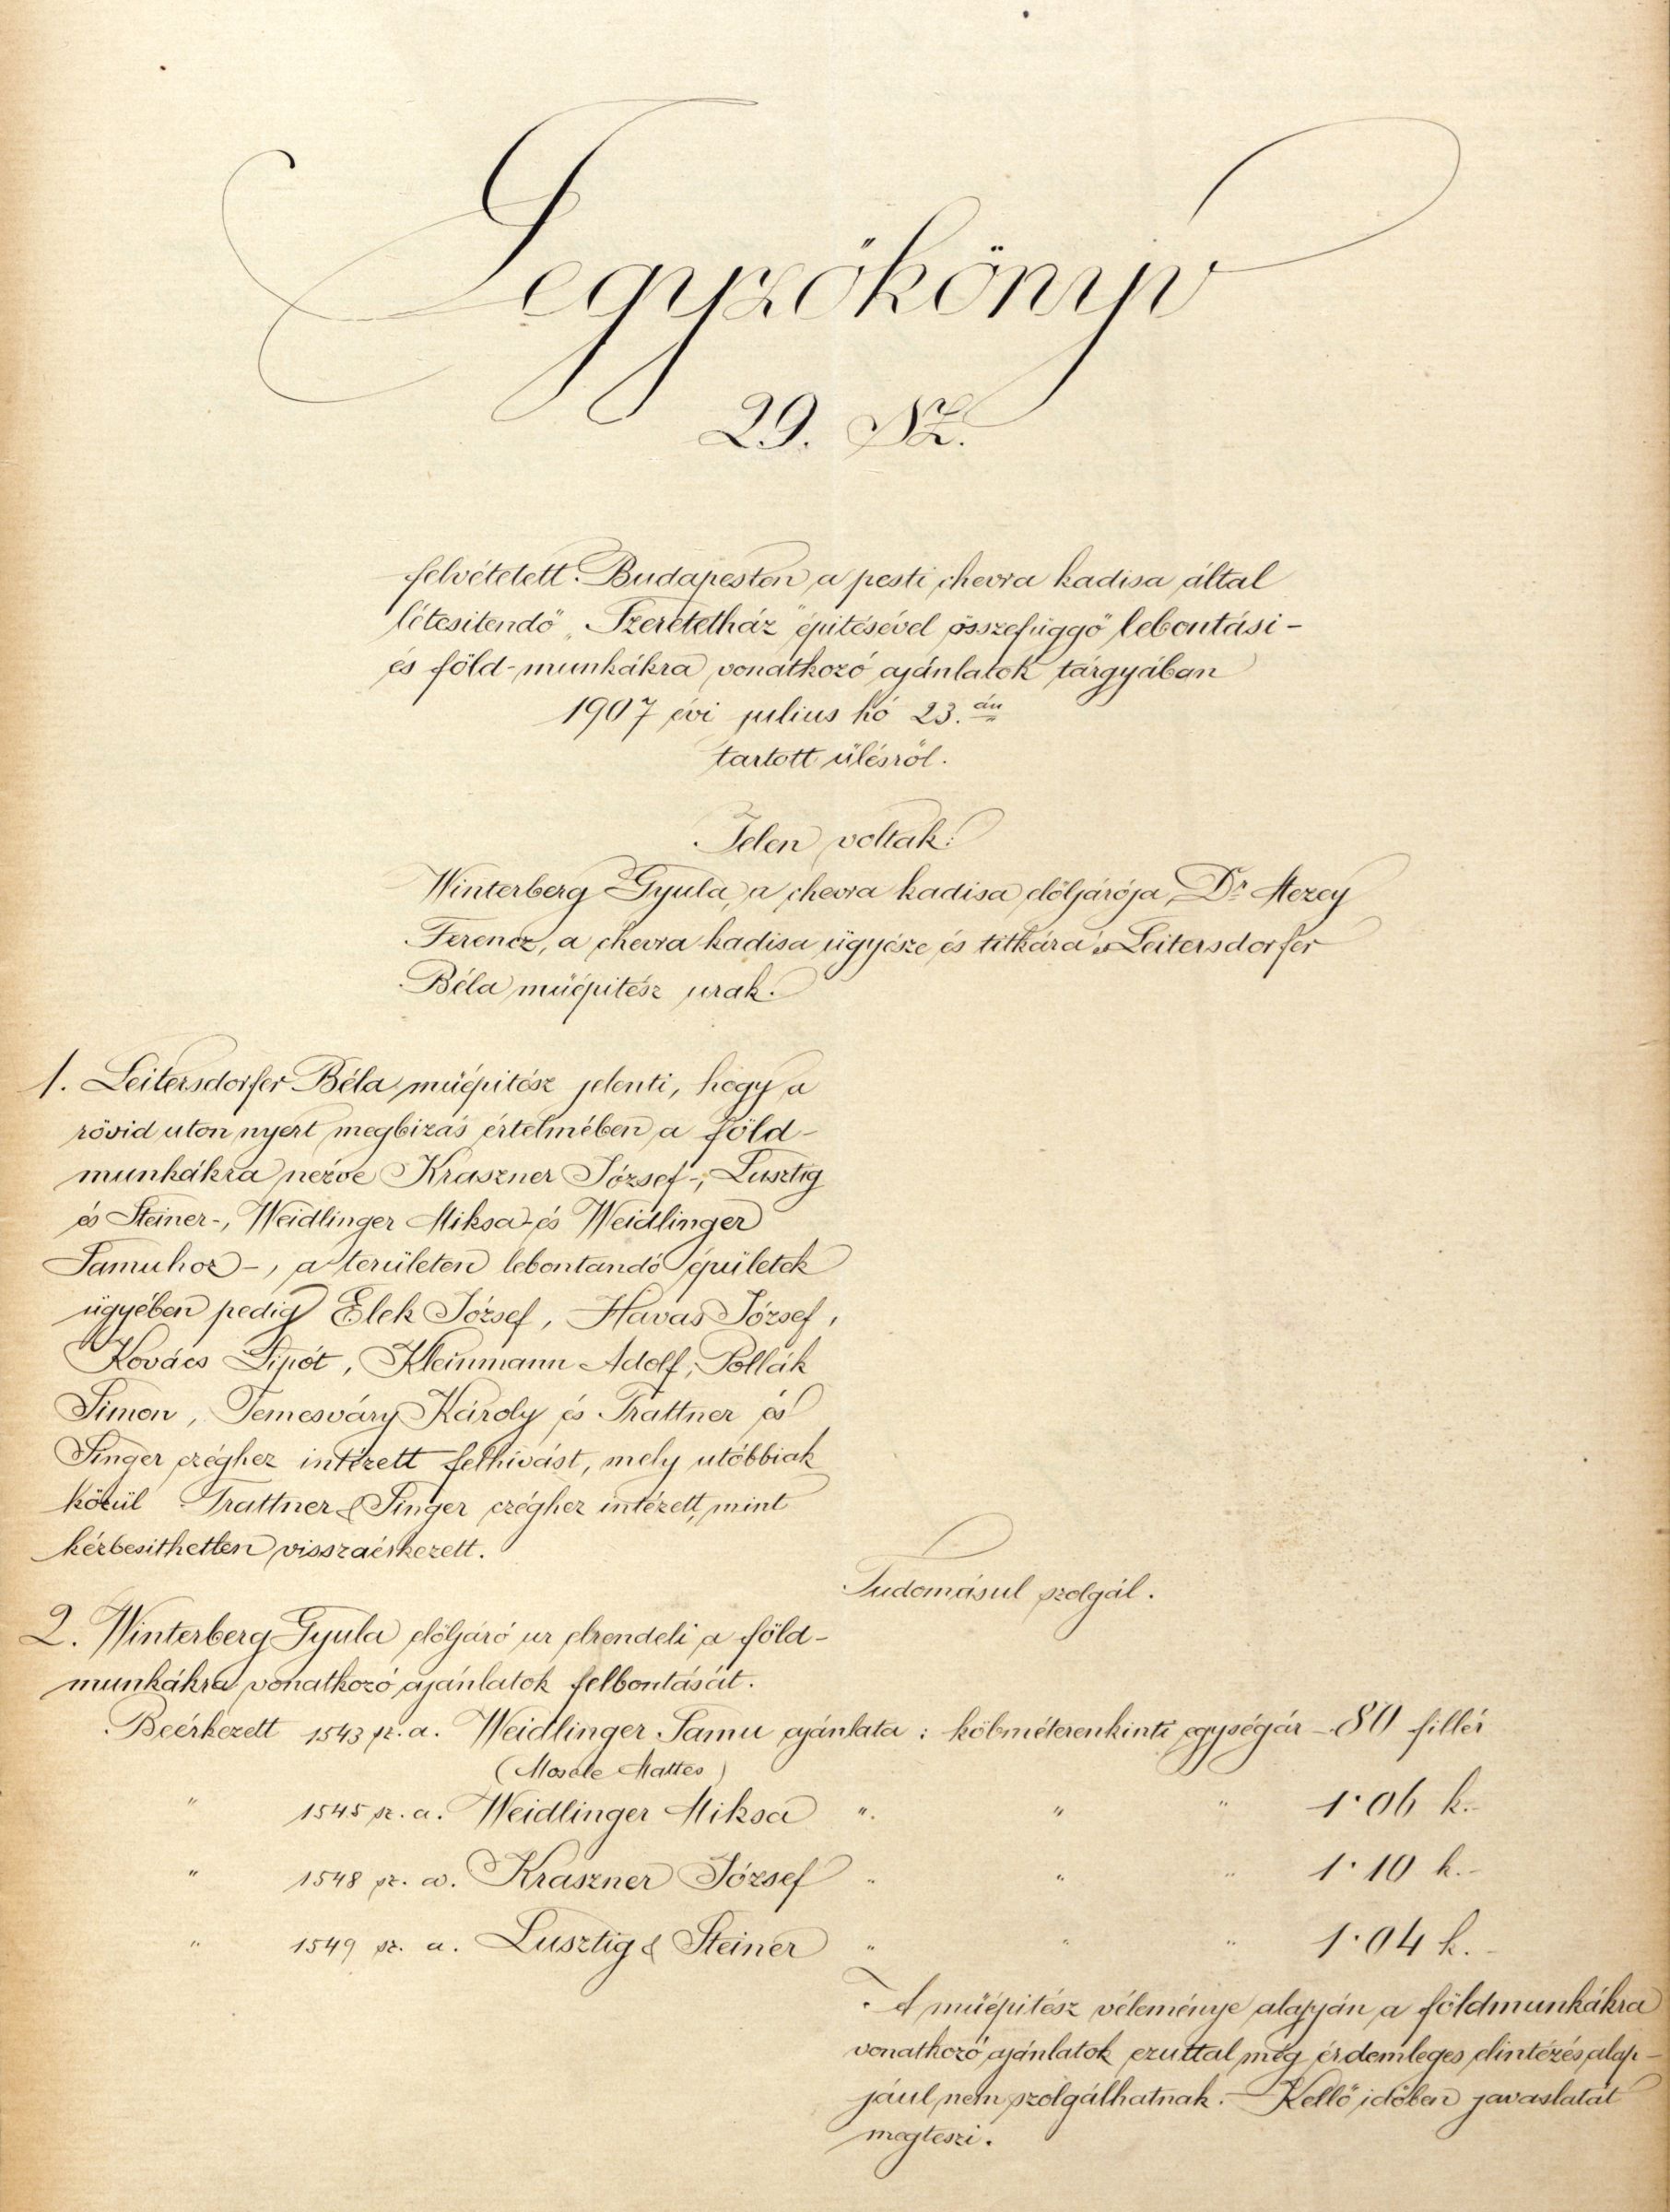 Jegyzőkönyv
29. Sz.
felvétetett Budapesten a pesti chevra kadisa által
létesitendő „Szeretetház” épitésével összefüggő lebontási-
és föld-munkákra vonatkozó ajánlatok tárgyában
1907 évi julius hó 23.án
tartott ülésről.
Jelen voltak:
Winterberg Gyula, a chevra kadisa elöljárója, Dr. Mezey
Ferencz, a chevra kadisa ügyésze és titkára s Leitersdorfer
Béla müépitész urak.
1. Leitersdorfer Béla müépitész jelenti, hogy a
rövid uton nyert megbizás értelmében a föld-
munkákra nézve Kraszner József-, Lusztig
és Steiner-, Weidlinger Miksa- és Weidlinger
Samuhoz-, a területen lebontandó épületek
ügyében pedig Elek József, Havas József,
Kovács Lipót, Kleinmann Adolf, Pollák
Simon, Temesváry Károly és Trattner és
Singer czéghez intézett felhivást, mely utóbbiak
közül Trattner & Singer czéghez intézett, mint
kézbesithetlen visszaérkezett.
Tudomásul szolgál.
2. Winterberg Gyula elöljáró ur elrendeli a föld-
munkákra vonatkozó ajánlatok felbontását.
Beérkezett 1543 sz. a. Weidlinger Samu ajánlata : köbméterenkinti egységár -80 fillér
(Mosole Matteo)
" 1545 sz. a. Weidlinger Miksa " " " 1·06 k.-
" 1548 sz. a. Kraszner József " " " 1·10 k.-
" 1549 sz. a. Lusztig & Steiner " " " 1·04 k.-
A müépitész véleménye alapján a földmunkákra
vonatkozó ajánlatok ezuttal még érdemleges elintézés alap-
jául nem szolgálhatnak. - Kellő időben javaslatát
megteszi.